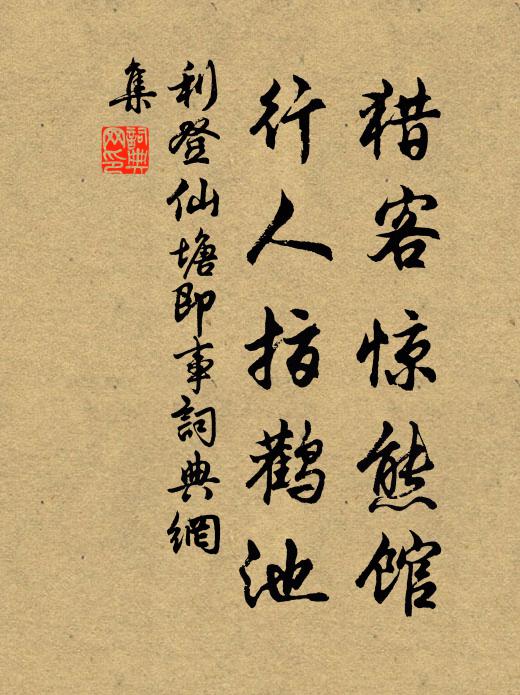 猎客惊熊馆
行人指鹳池
利登仙塘即事詞典網
集
詞典
网印